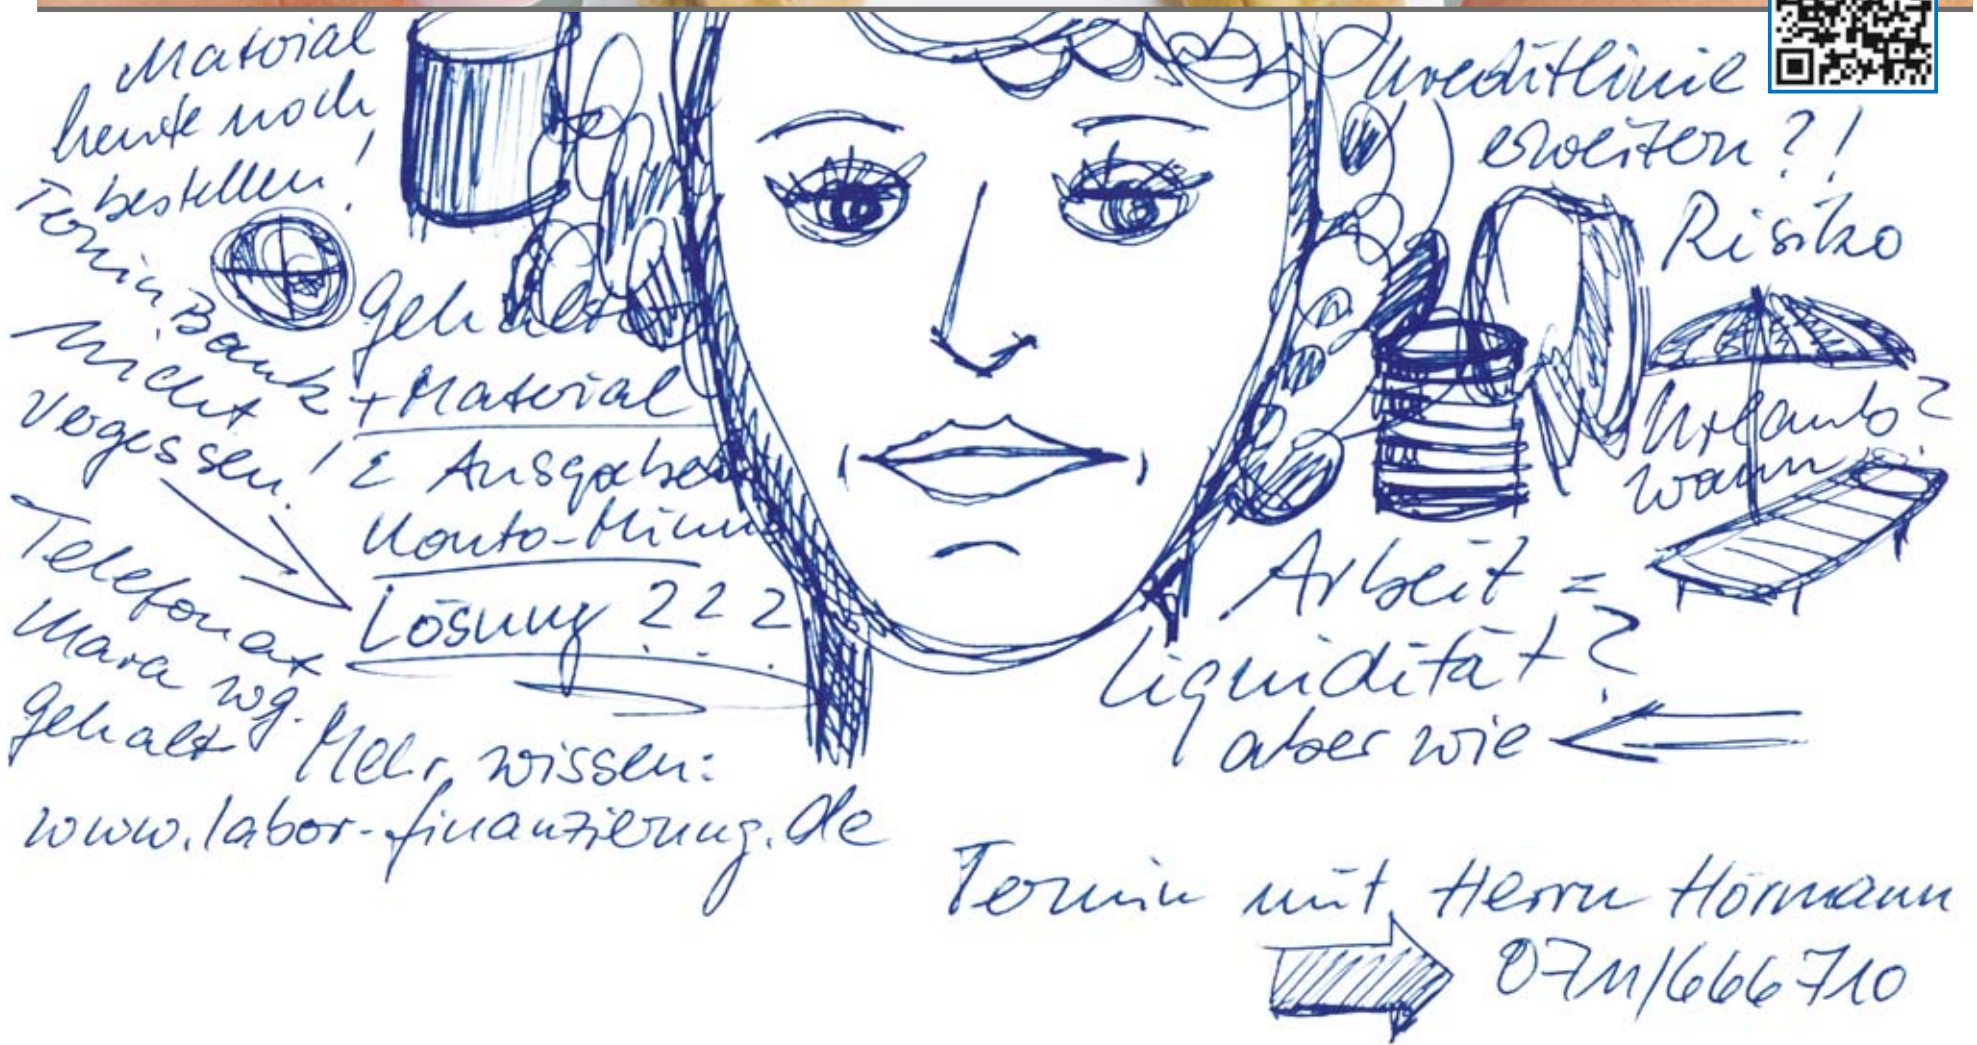 Material
heute noch
bestellen!
Termin Bank
nicht
vergessen!
Gehälter
+ Material
Σ Ausgaben
Konto-Minus
Lösung ? ? ?
Telefonat
Mara wg.
Gehalt
Mehr wissen:
www.labor-finanzierung.de
Kreditlinie
erweitern?!
Risiko
Urlaub?
wann?
Arbeit =
Liquidität?
aber wie
Termin mit Herrn Hörmann
0711/666710